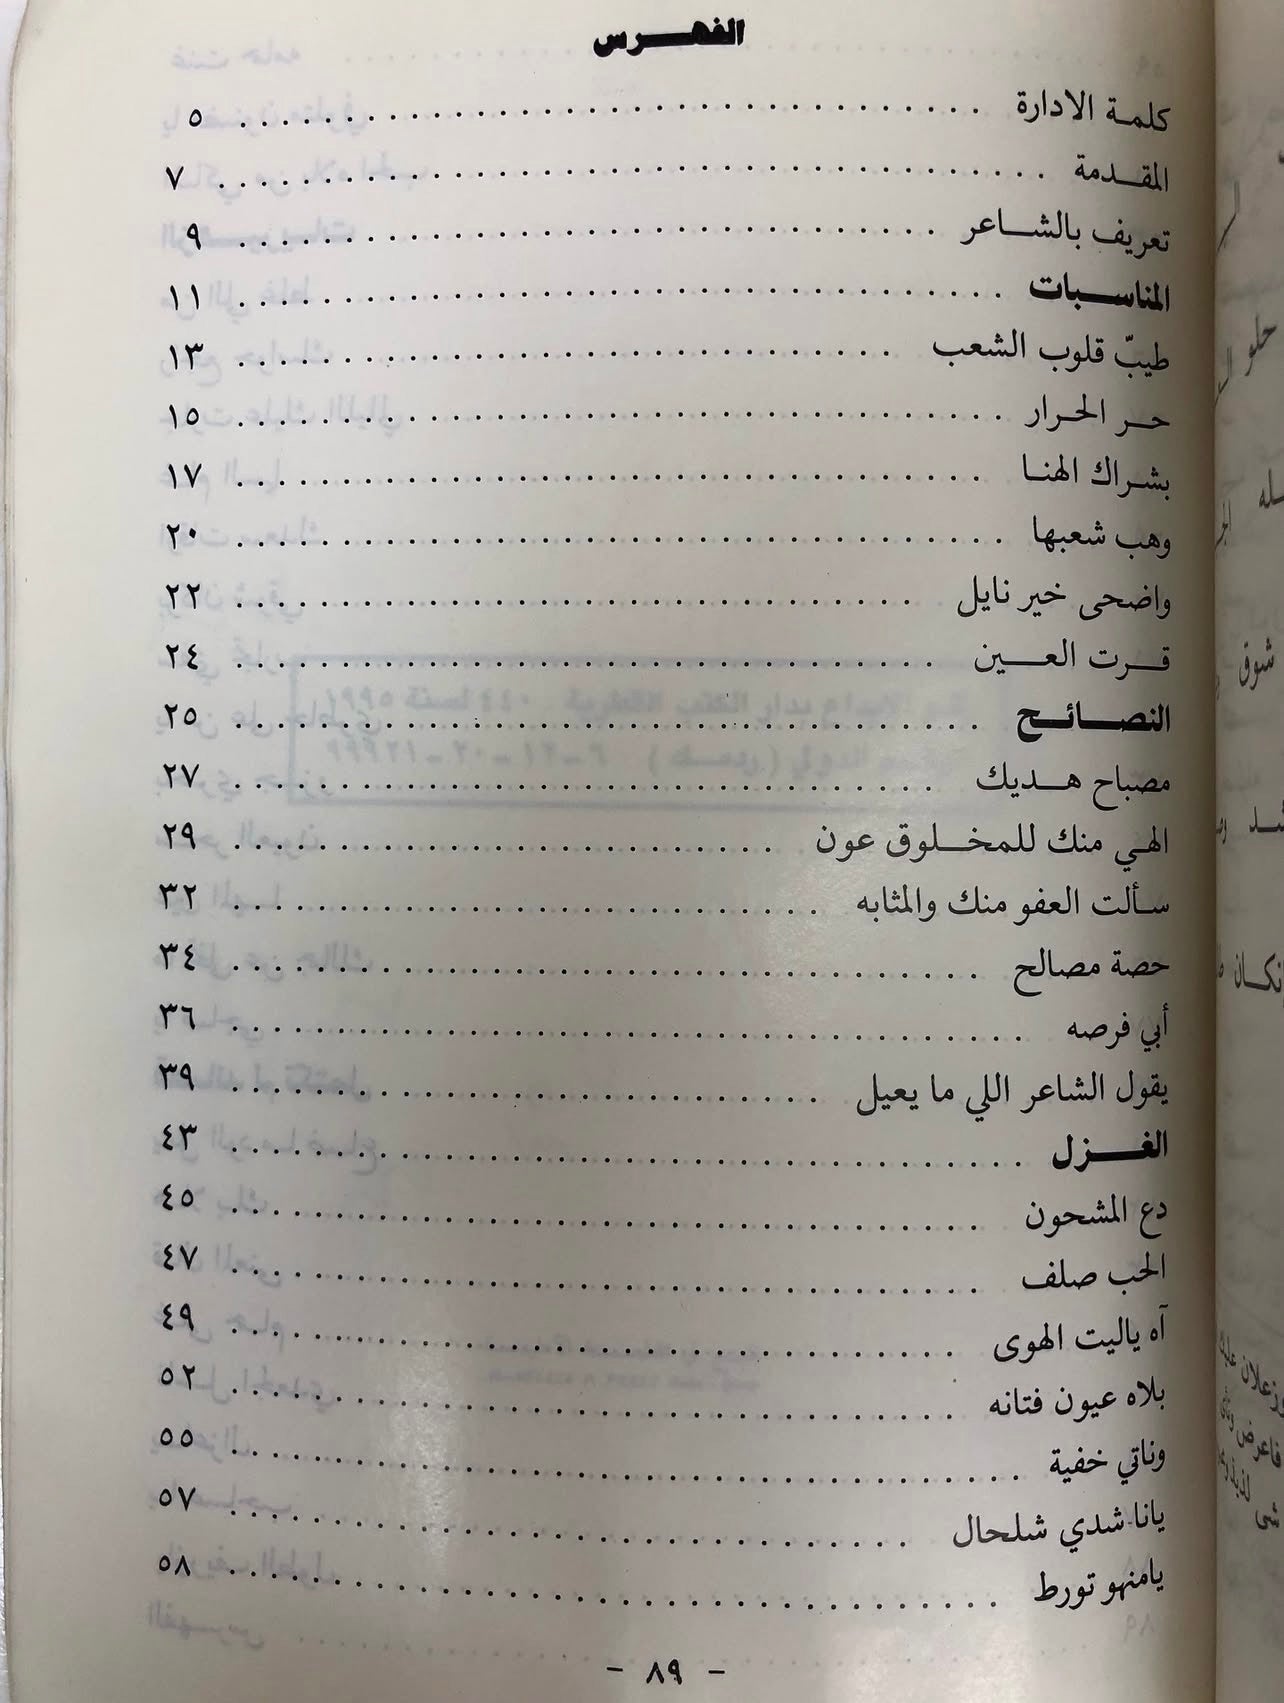 الفهرس
كلمة الادارة . . . . . . . . . . . . . . . . . . . . ٥
المقدمة . . . . . . . . . . . . . . . . . . . . ٧
تعريف بالشاعر . . . . . . . . . . . . . . . . . . . . ٩
المناسبات . . . . . . . . . . . . . . . . . . . . ١١
طيبّ قلوب الشعب . . . . . . . . . . . . . . . . . . . . ١٣
حر الحرار . . . . . . . . . . . . . . . . . . . . ١٥
بشراك الهنا . . . . . . . . . . . . . . . . . . . . ١٧
وهب شعبها . . . . . . . . . . . . . . . . . . . . ٢٠
واضحى خير نايل . . . . . . . . . . . . . . . . . . . . ٢٢
قرت العين . . . . . . . . . . . . . . . . . . . . ٢٤
النصائح . . . . . . . . . . . . . . . . . . . . ٢٥
مصباح هديك . . . . . . . . . . . . . . . . . . . . ٢٧
الهي منك للمخلوق عون . . . . . . . . . . . . . . . . . . . . ٢٩
سألت العفو منك والمثابه . . . . . . . . . . . . . . . . . . . . ٣٢
حصة مصالح . . . . . . . . . . . . . . . . . . . . ٣٤
أبي فرصه . . . . . . . . . . . . . . . . . . . . ٣٦
يقول الشاعر اللي ما يعيل . . . . . . . . . . . . . . . . . . . . ٣٩
الغزل . . . . . . . . . . . . . . . . . . . . ٤٣
دع المشحون . . . . . . . . . . . . . . . . . . . . ٤٥
الحب صلف . . . . . . . . . . . . . . . . . . . . ٤٧
آه ياليت الهوى . . . . . . . . . . . . . . . . . . . . ٤٩
بلاه عيون فتانه . . . . . . . . . . . . . . . . . . . . ٥٢
وناتي خفية . . . . . . . . . . . . . . . . . . . . ٥٥
يانا شدي شلحال . . . . . . . . . . . . . . . . . . . . ٥٧
يامنهو تورط . . . . . . . . . . . . . . . . . . . . ٥٨
- ٨٩ -
حلو
شوق